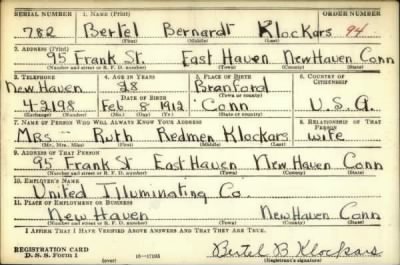 SERIAL NUMBER 1. NAME (Print) ORDER NUMBER
782 Bertel Bernardt Klockars 94
(First) (Middle) (Last)
2. ADDRESS (Print)
95 Frank St East Haven New Haven Conn
(Number and street or R. F. D. number) (Town) (County) (State)
3. TELEPHONE 4. AGE IN YEARS 5. PLACE OF BIRTH 6. COUNTRY OF CITIZENSHIP
New Haven 28 Branford
DATE OF BIRTH (Town or county)
4-2198 Feb 8 1912 Conn U.S.A.
(Exchange) (Number) (Mo.) (Day) (Yr.) (State or country)
7. NAME OF PERSON WHO WILL ALWAYS KNOW YOUR ADDRESS 8. RELATIONSHIP OF THAT PERSON
Mrs Ruth Redmen Klockars wife
(Mr., Mrs., Miss) (First) (Middle) (Last)
9. ADDRESS OF THAT PERSON
95 Frank St East Haven New Haven Conn
(Number and street or R. F. D. number) (Town) (County) (State)
10. EMPLOYER'S NAME
United Illuminating Co.
11. PLACE OF EMPLOYMENT OR BUSINESS
New Haven New Haven Conn
(Number and street or R. F. D. number) (Town) (County) (State)
I AFFIRM THAT I HAVE VERIFIED ABOVE ANSWERS AND THAT THEY ARE TRUE.
REGISTRATION CARD
D. S. S. Form 1 (over) 16—17105 Bertel B Klockars
(Registrant's signature)